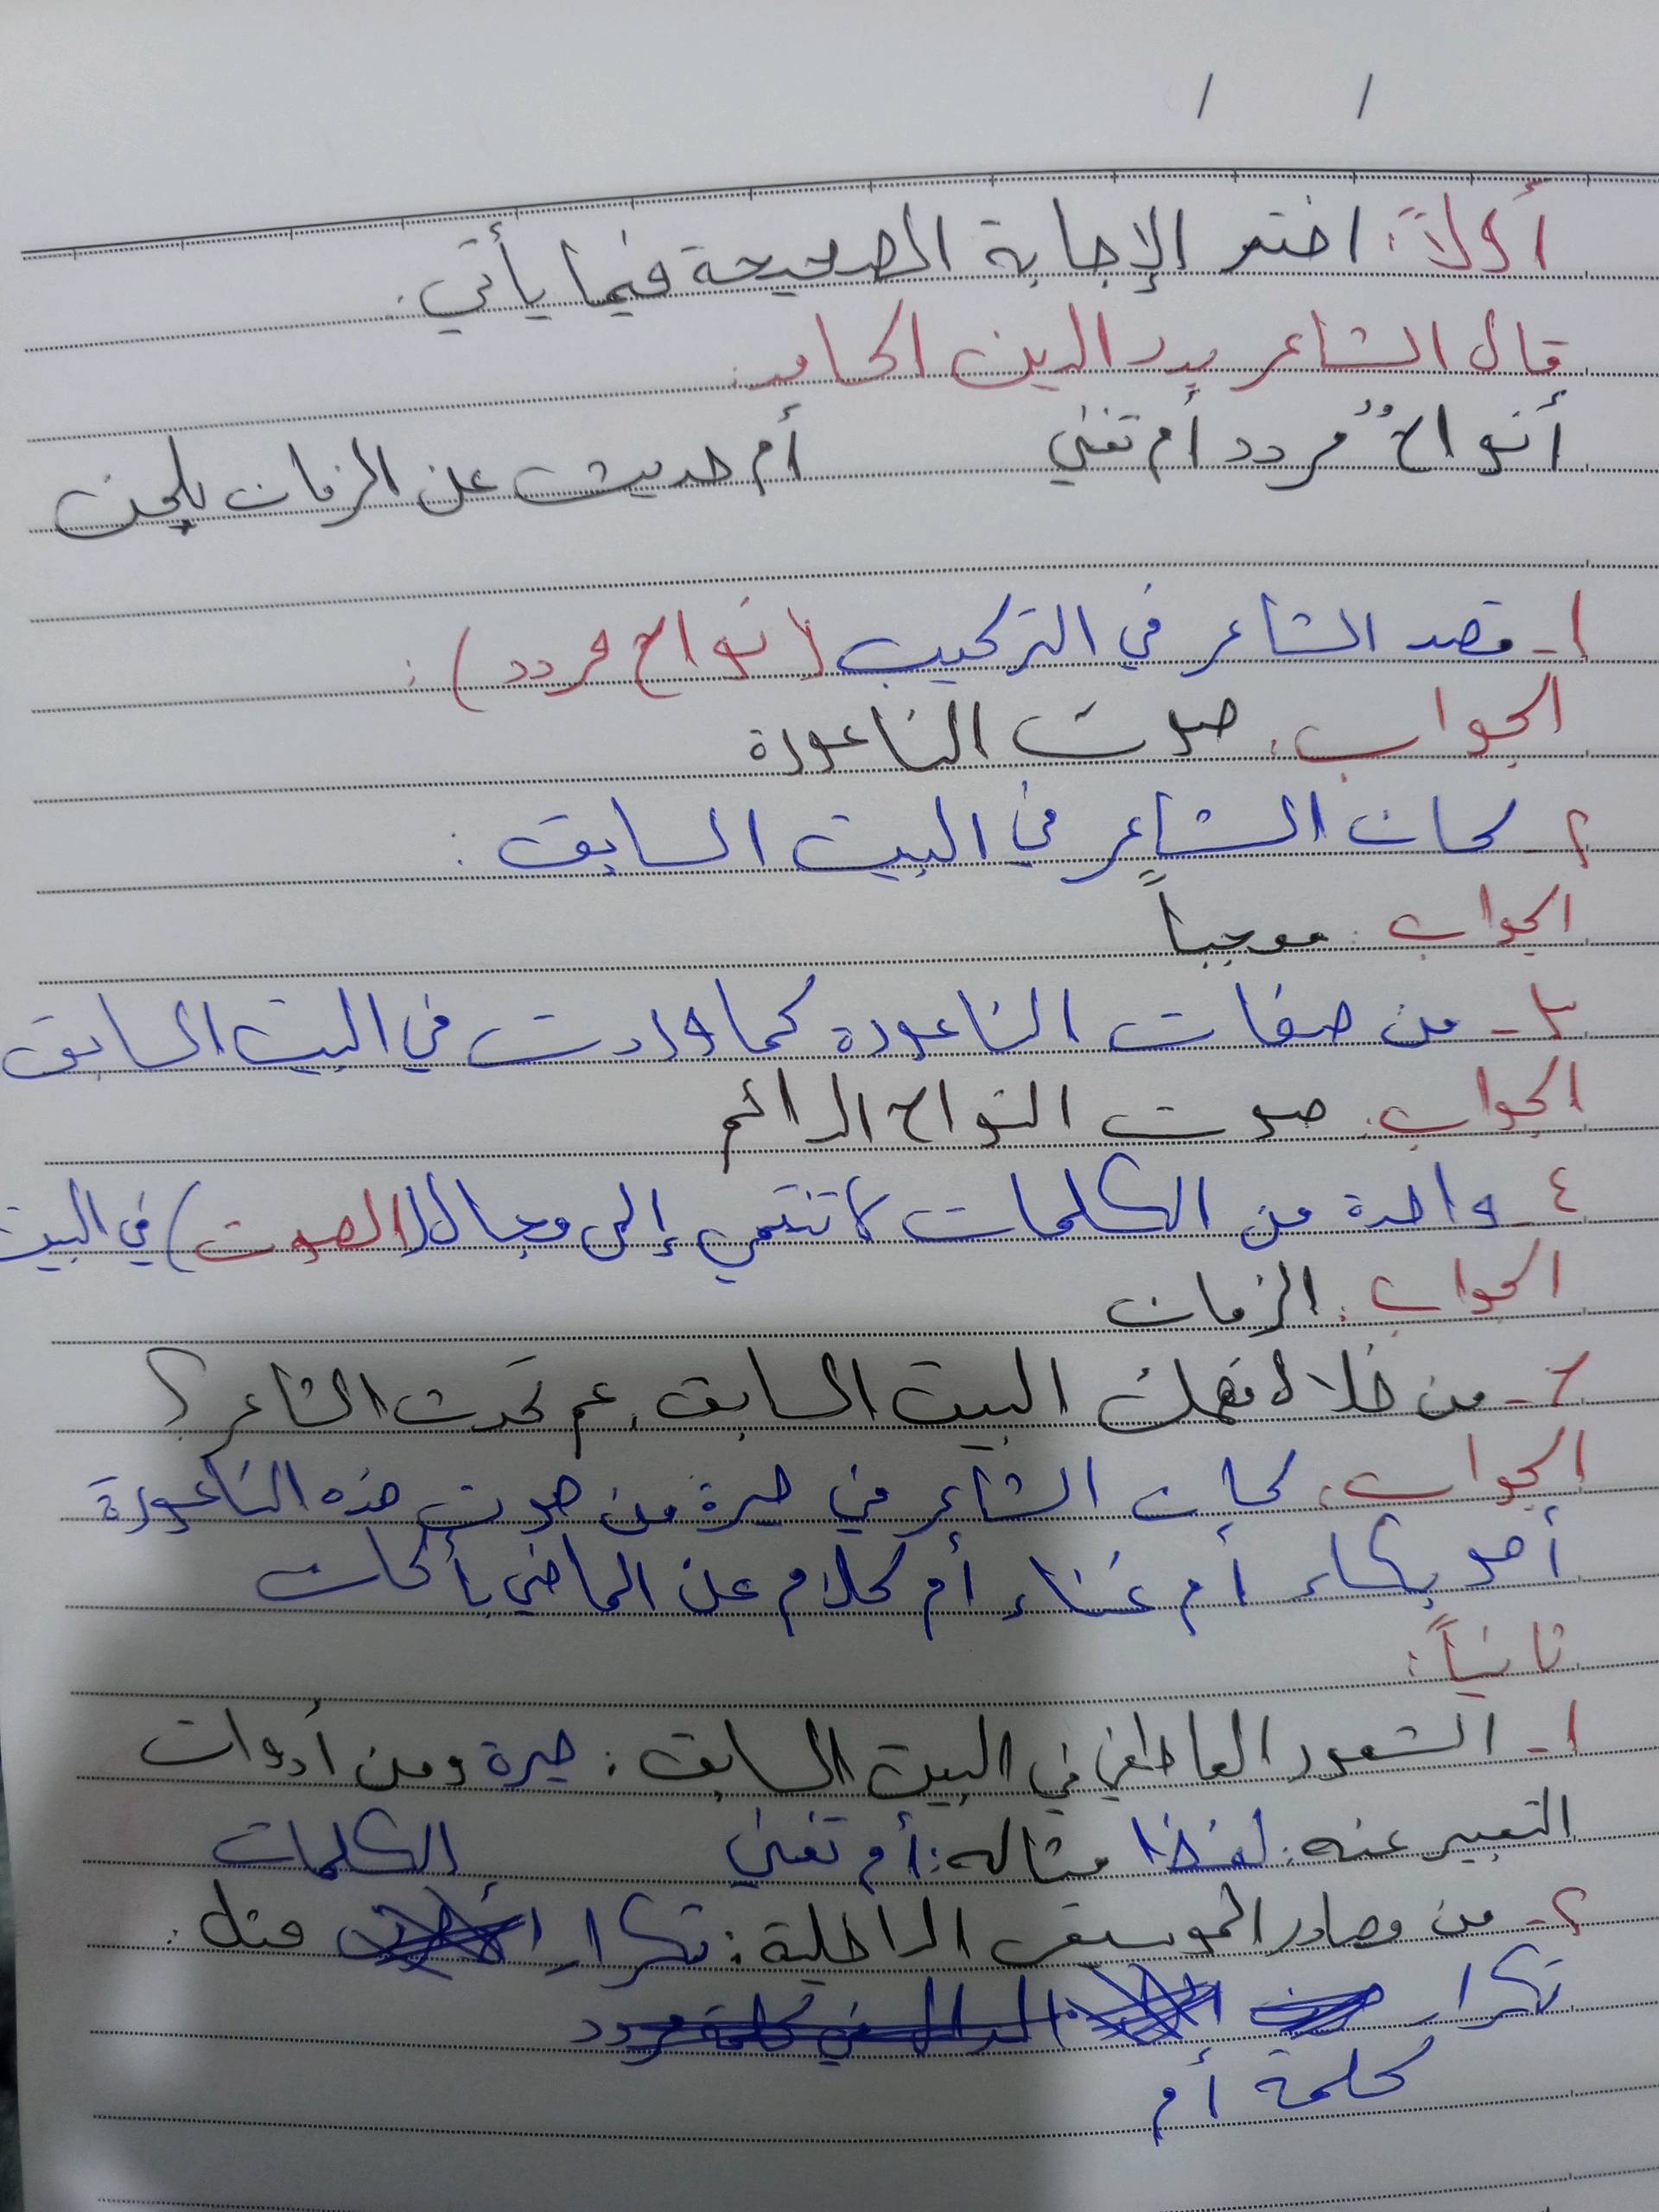 / /
أولاً: اختر الإجابة الصحيحة فيما يأتي:
قال الشاعر بدر الدين الحامد:
أنواحٌ مُردد أم تغني أم حديث عن الزمان بلحن
١- قصد الشاعر في التركيب (انواح مردد):
الجواب: صوت الناعورة
٢- كان الشاعر في البيت السابق:
الجواب: معجباً
٣- من صفات الناعورة كما وردت في البيت السابق
الجواب: صوت النواح الدائم
٤- واحدة من الكلمات لا تنتمي إلى مجال (الصوت) في البيت
الجواب: الزمان
٦- من خلال فهمك البيت السابق، عم تحدث الشاعر؟
الجواب: كان الشاعر في حيرة من صوت هذه الناعورة
أهو بكاء أم غناء أم كلام عن الماضي بألحان
ثانياً:
١- الشعور العاطفي في البيت السابق: حيرة ومن أدوات
التعبير عنه: لفظ مثاله: أم تغني
الكلمات
٢- من مصادر الموسيقى الداخلية: تكرار مثل:
تكرار
كلمة أم